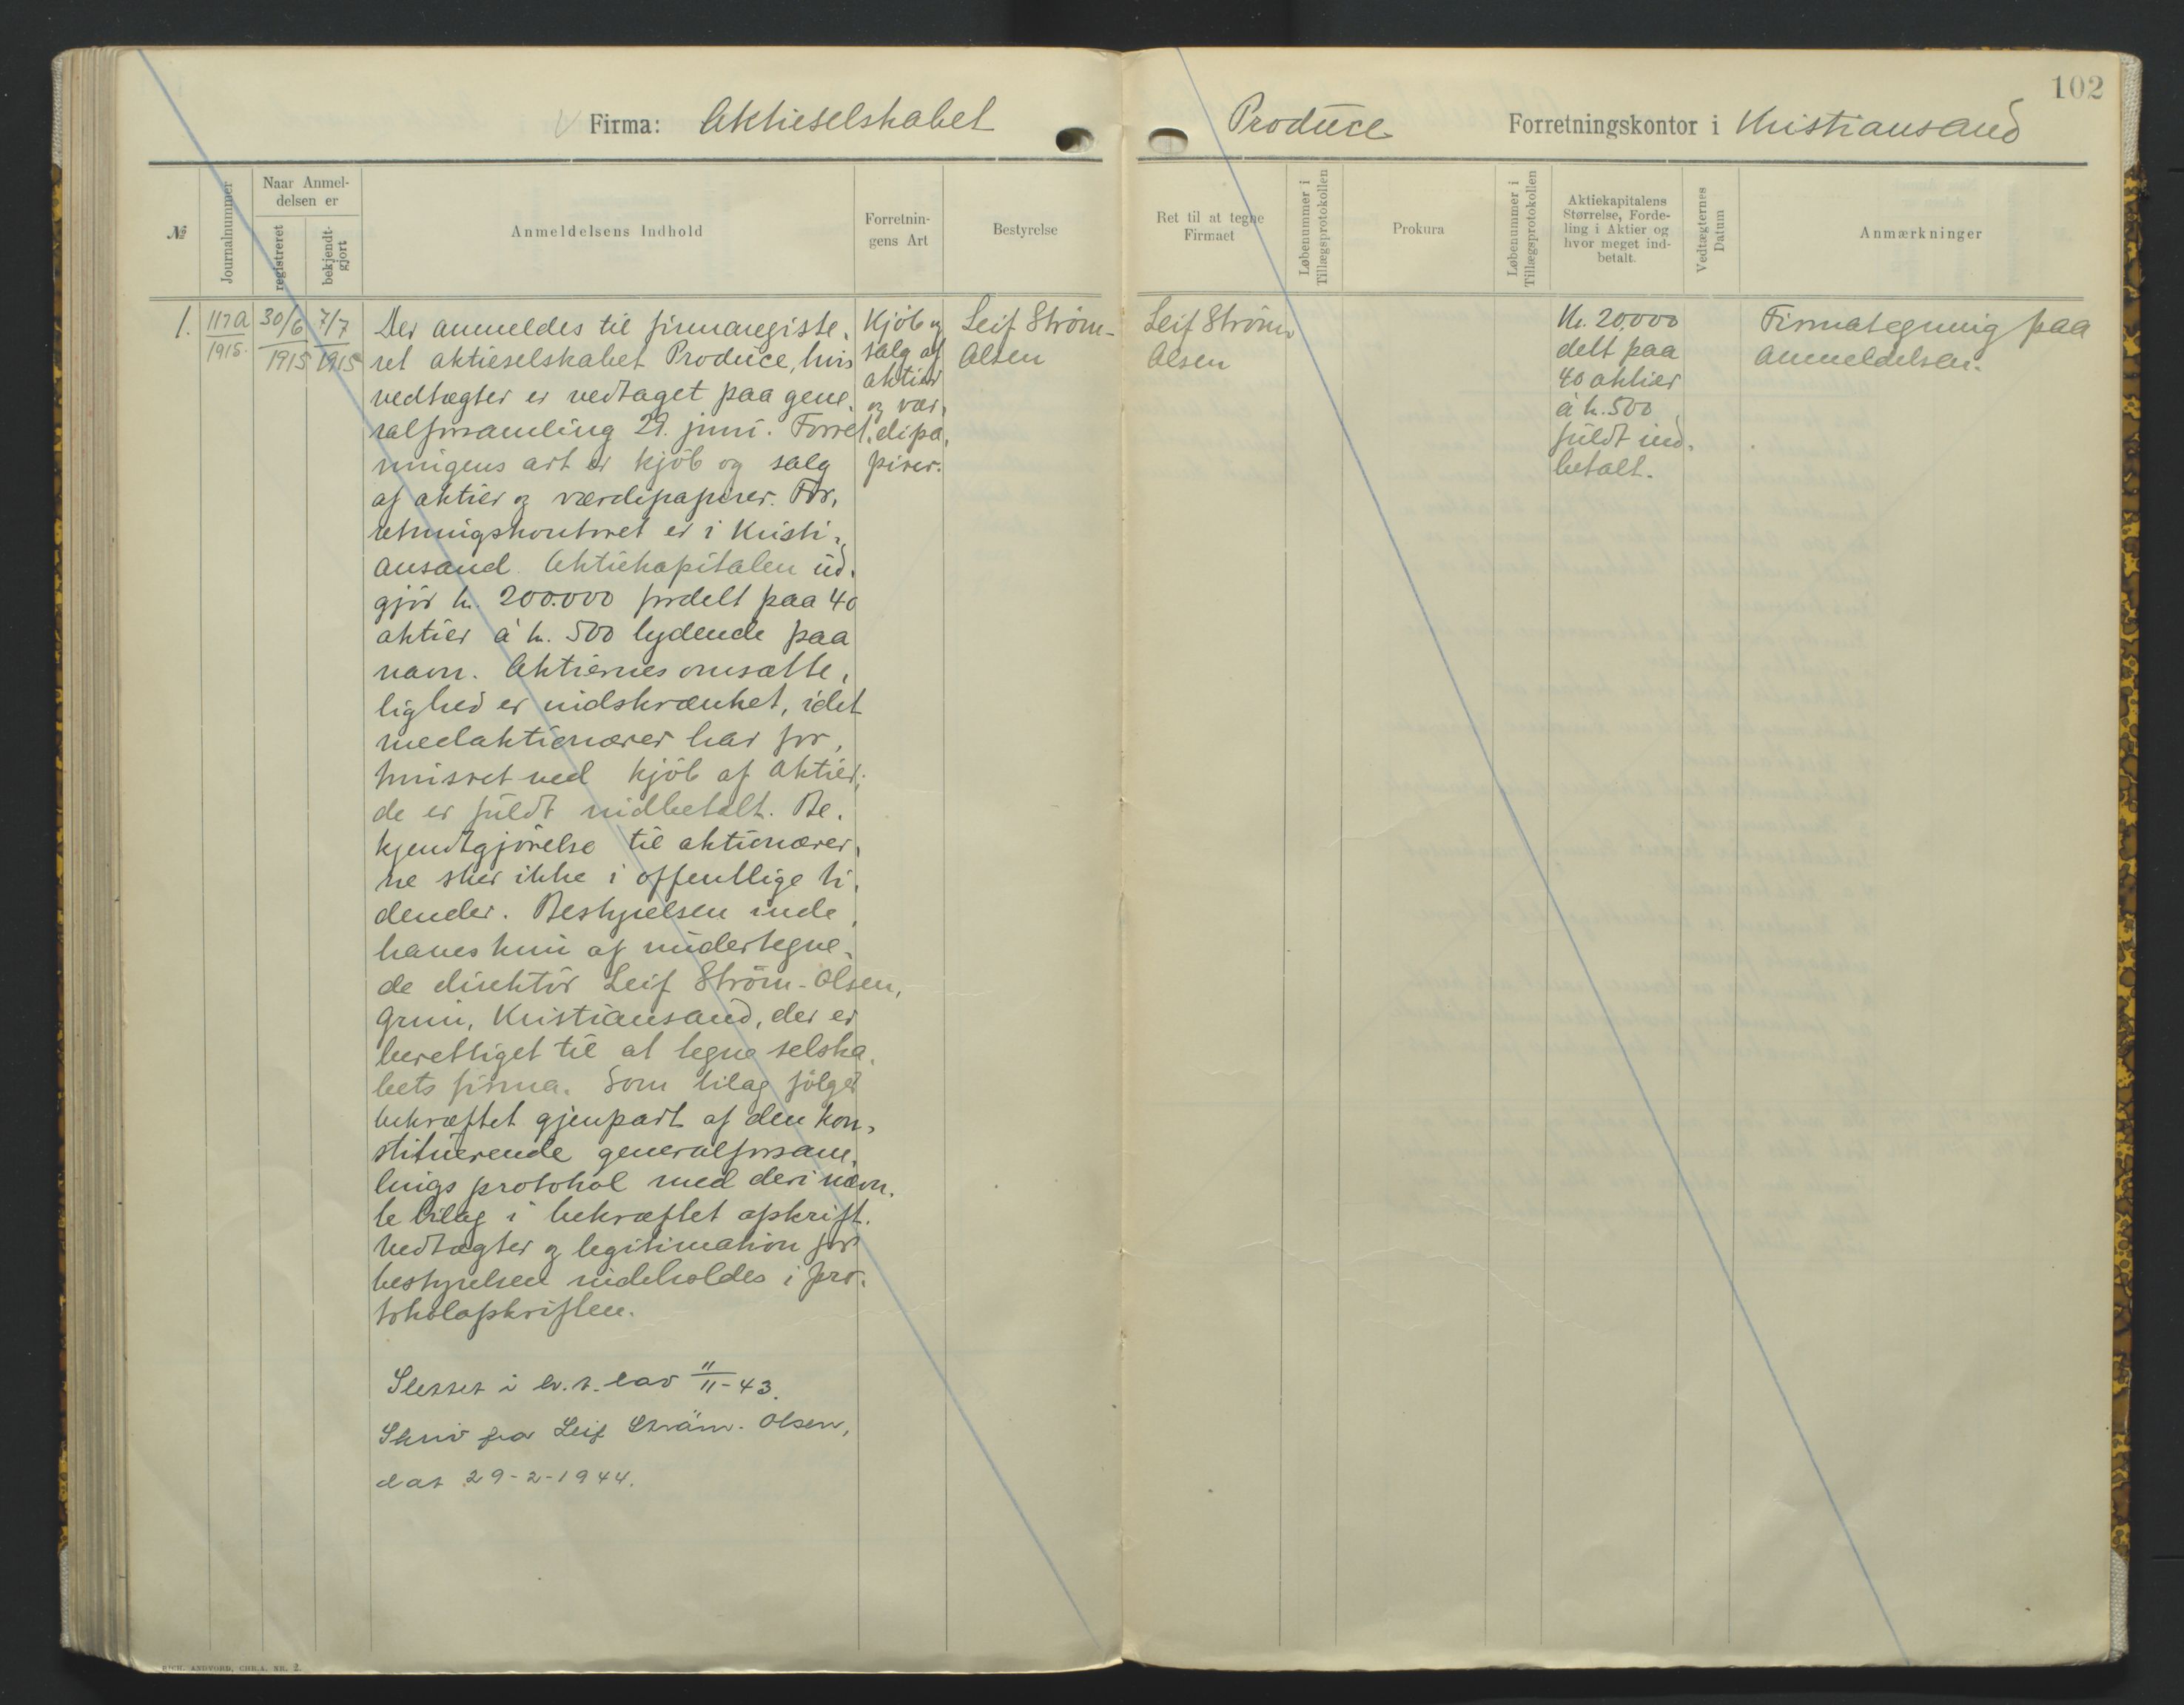 102
Firma: Aktieselskabet Produce Forretningskontor i Kristiansand
№
Journalnummer
Naar Anmel-
delsen er
registreret
bekjendt-
gjort
Anmeldelsens Indhold
Forretnin-
gens Art
Bestyrelse
Ret til at tegne
Firmaet
Løbenummer i
Tillægsprotokollen
Prokura
Løbenummer i
Tillægsprotokollen
Aktiekapitalens
Størrelse, Forde-
ling i Aktier og
hvor meget ind-
betalt.
Vedtægternes
Datum
Anmærkninger
1.
117a
1915.
30/6
1915
7/7
1915
Der anmeldes til firmaregiste-
ret aktieselskabet Produce, hvis
vedtægter er vedtaget paa gene-
ralforsamling 29. juni. Forret-
ningens art er kjöb og salg
af aktier og værdipapirer. For-
retningskontoret er i Kristi-
ansand. Aktiekapitalen ud-
gjör kr. 200.000 fordelt paa 40
aktier à kr. 500 lydende paa
navn. Aktiernes omsætte-
lighed er indskrænket, idet
medaktionærer har for-
kjøbsret ved kjöb af aktier;
de er fuldt indbetalt. Be-
kjendtgjörelse til aktionærer-
ne sker ikke i offentlige ti-
dender. Bestyrelsen inde-
haves kun af undertegne-
de direktör Leif Ström-Olsen,
Grim, Kristiansand, der er
berettiget til at tegne selska-
bets firma. Som bilag fölger
bekræftet gjenpart af den kon-
stituerende generalforsam-
lings protokol med deri nævn-
te bilag i bekræftet afskrift.
Vedtægter og legitimation for
bestyrelsen indeholdes i pro-
tokolafskriften.
Slettet i h. t. lov 11/11-43.
Skriv fra Leif Ström-Olsen,
dat 29-2-1944.
Kjöb og
salg af
aktier
og vær-
dipa-
pirer.
Leif Ström-
Olsen
Leif Ström-
Olsen
Kr. 20,000
delt paa
40 aktier
à kr. 500
fuldt ind-
betalt.
Firmategning paa
anmeldelsen.
RICH. ANDVORD, CHR.A. NR. 2.